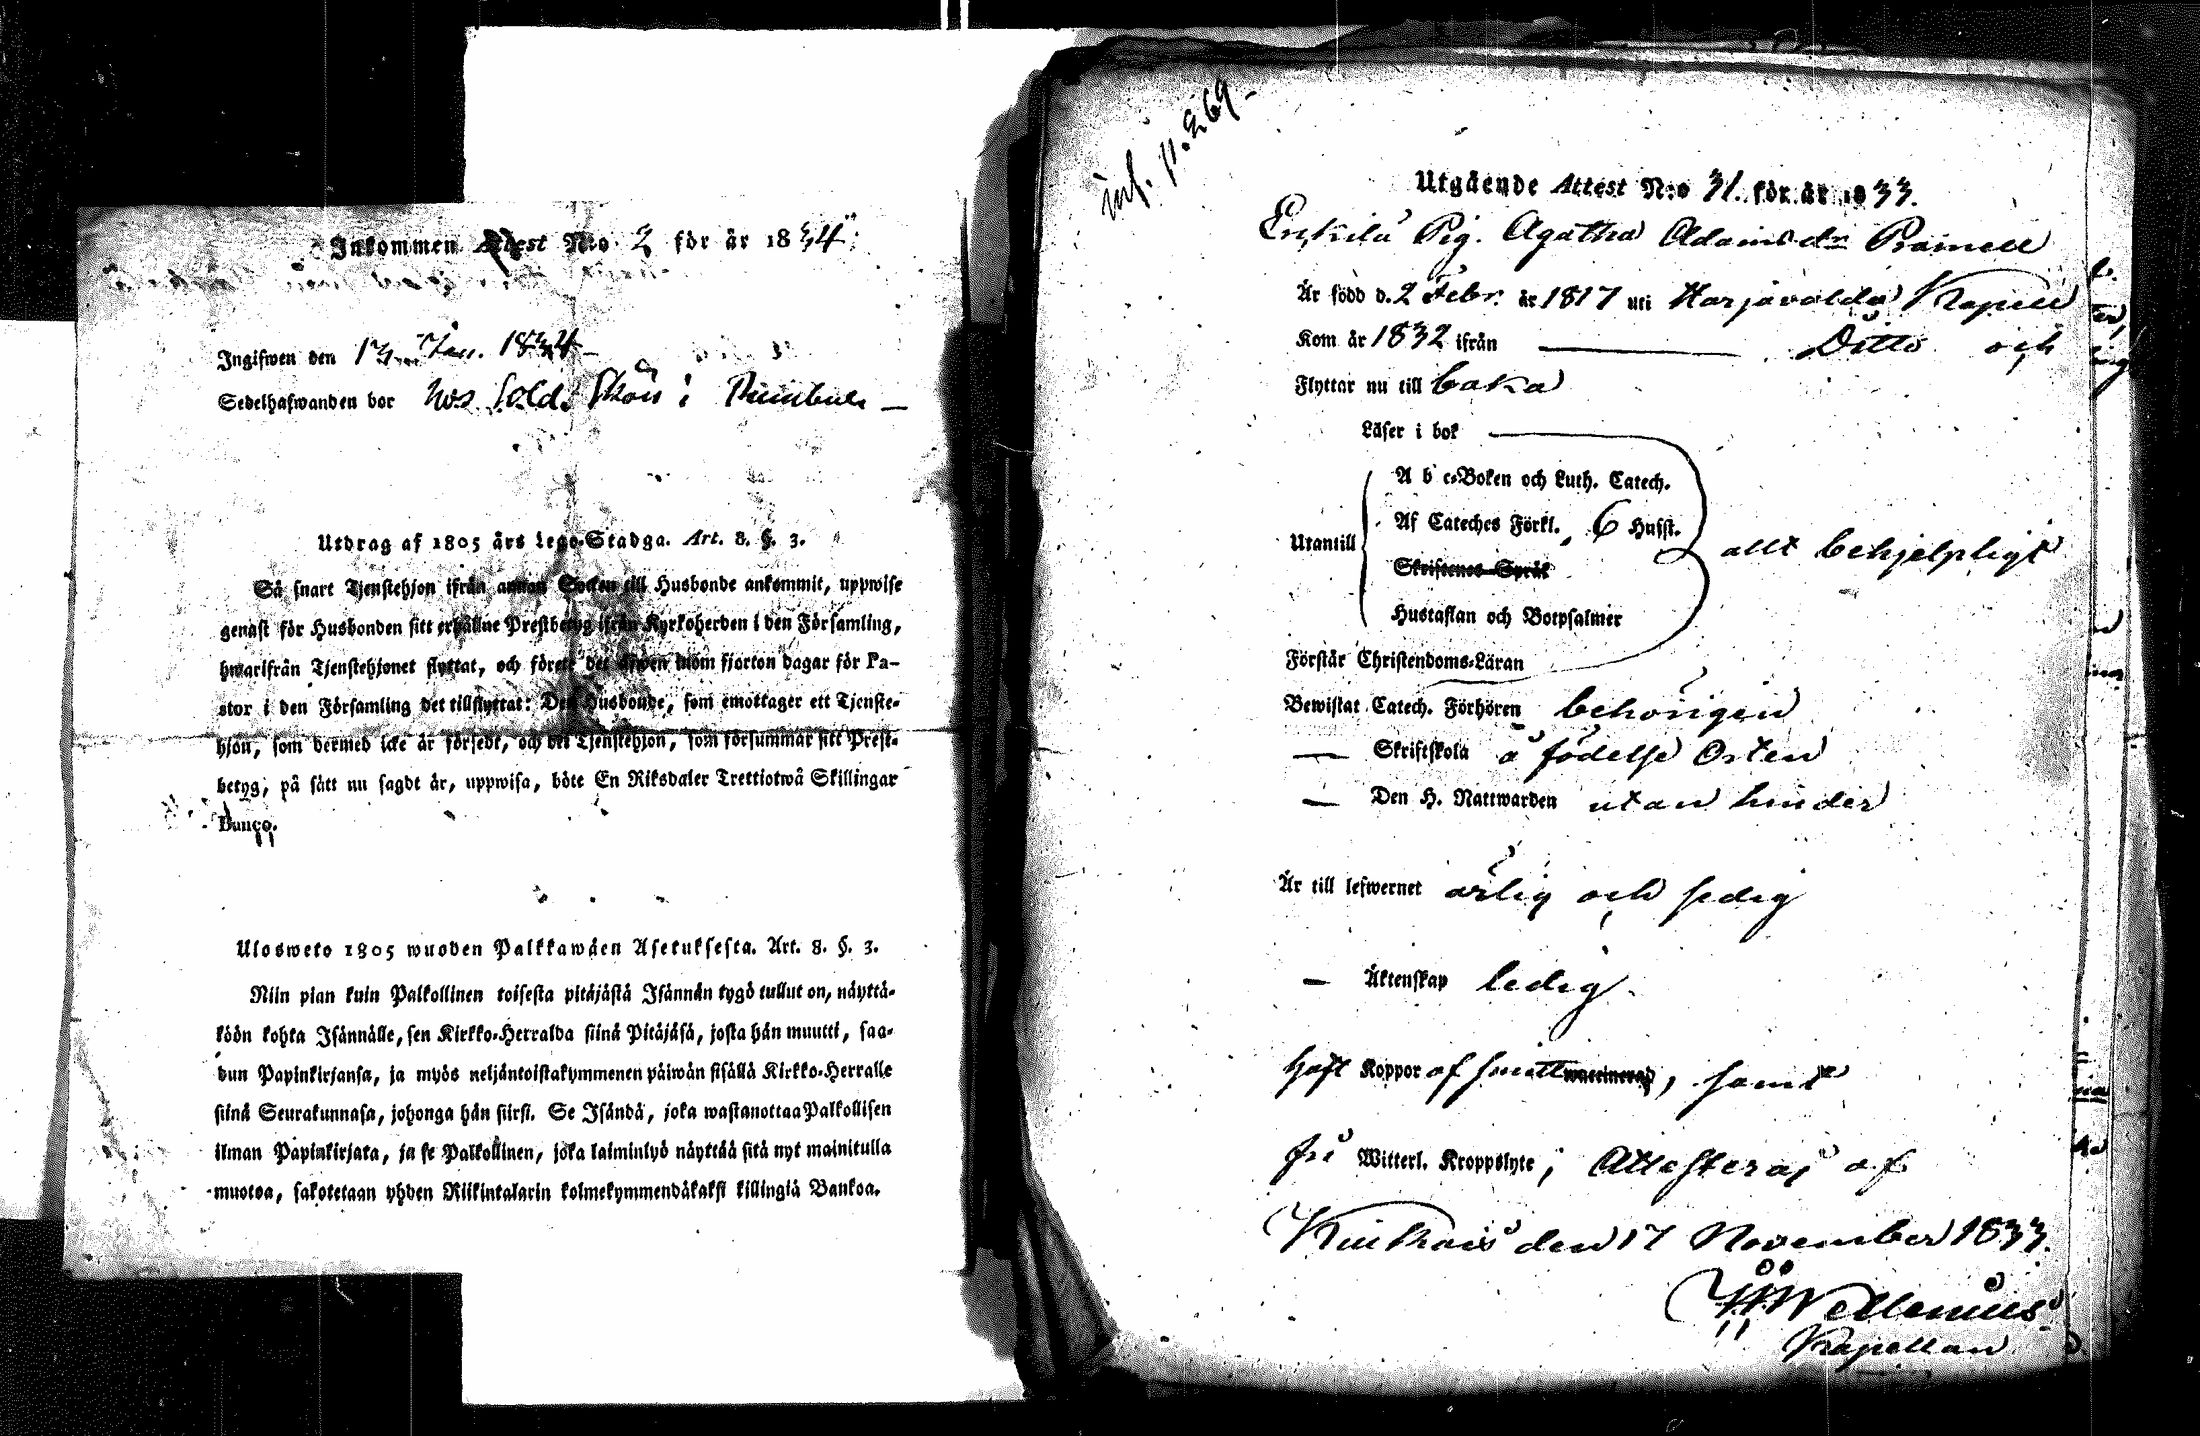 Inkommen Attest N:o 2 för år 1834
Ingifwen den 13 Jan. 1834
Sedelhafwanden bor hos Sold. Skön i
Utdrag af 1805 års Lego-Stadga. Art. 8. §. 3.
Så snart Tjenstehjon ifrån annan Socken till Husbonde ankommit, uppwise
genast för Husbonden sitt erhållne Prestbetyg ifrån Kyrkoherden i den Församling,
hwarifrån Tjenstehjonet flyttat, och förete det äfwen inom fjorton dagar för Pa-
stor i den Församling det tillflyttat: Den Husbonde, som emottager ett Tjenste-
hjon, som dermed icke är försedt, och det Tjenstehjon, som försummar sitt Prest-
betyg, på sätt nu sagdt är, uppwisa, böte En Riksdaler Trettiotwå Skillingar
Banco.
Ulosweto 1805 wuoden Palkkawäen Asetuksesta. Art. 8. §. 3.
Niin pian kuin Palkollinen toisesta pitäjästä Isännän tygö tullut on, näyttä-
köön kohta Isännälle, sen Kirkko-Herralda siinä Pitäjäsä, josta hän muutti, saa-
dun Papinkirjansa, ja myös neljäntoistakymmenen päiwän sisällä Kirkko-Herralle
siinä Seurakunnasa, johonga hän siirsi. Se Isändä, joka wastanottaa Palkollisen
ilman Papinkirjata, ja se Palkollinen, joka laiminlyö näyttää sitä nyt mainitulla
muotoa, sakotetaan yhden Riikintalarin kolmekymmendäkaksi killingiä Bankoa.
inf. p. 269
Utgående Attest N:o 31. för år 1833.
Enskila Pig. Agatha Adamsdr
Är född d. 2 Febr. år 1817 uti Harjavalda Kapell
Kom år 1832 ifrån Ditto och
Flyttar nu till baka
Läser i bok
A b c-Boken och Luth. Catech.
Utantill Af Cateches Förkl. 6 Husst. allt behjelpligt
Skriftenes Språk
Hustaflan och Botpsalmer
Förstår Christendoms-Läran
Bewistat Catech. Förhören behörigen
— Skriftskola å födelse Orten
— Den H. Nattwarden utan hinder
Är till lefwernet ärlig och sedig
— Äktenskap ledig
haft Koppor af smitt waccinerad, samt
fri Witterl. Kroppslyte; Attesteras af
den 17 November 1833.
Wellenius
Kapellan